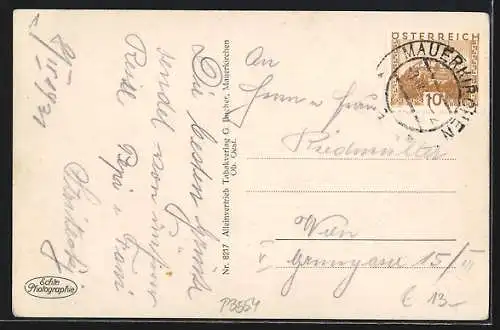 29/IV 1931
Die besten Grüße
sendet von unserer
Reise Papi u. Frani
Nr. 8217 Alleinvertrieb Tabakverlag G. Bucher, Mauerkirchen
Ob. Oest.
Echte
Photographie
ÖSTERREICH
10
MAUERKIRCHEN
An
Herrn u. Frau
Wien
15/III
P3554
€ 13.-